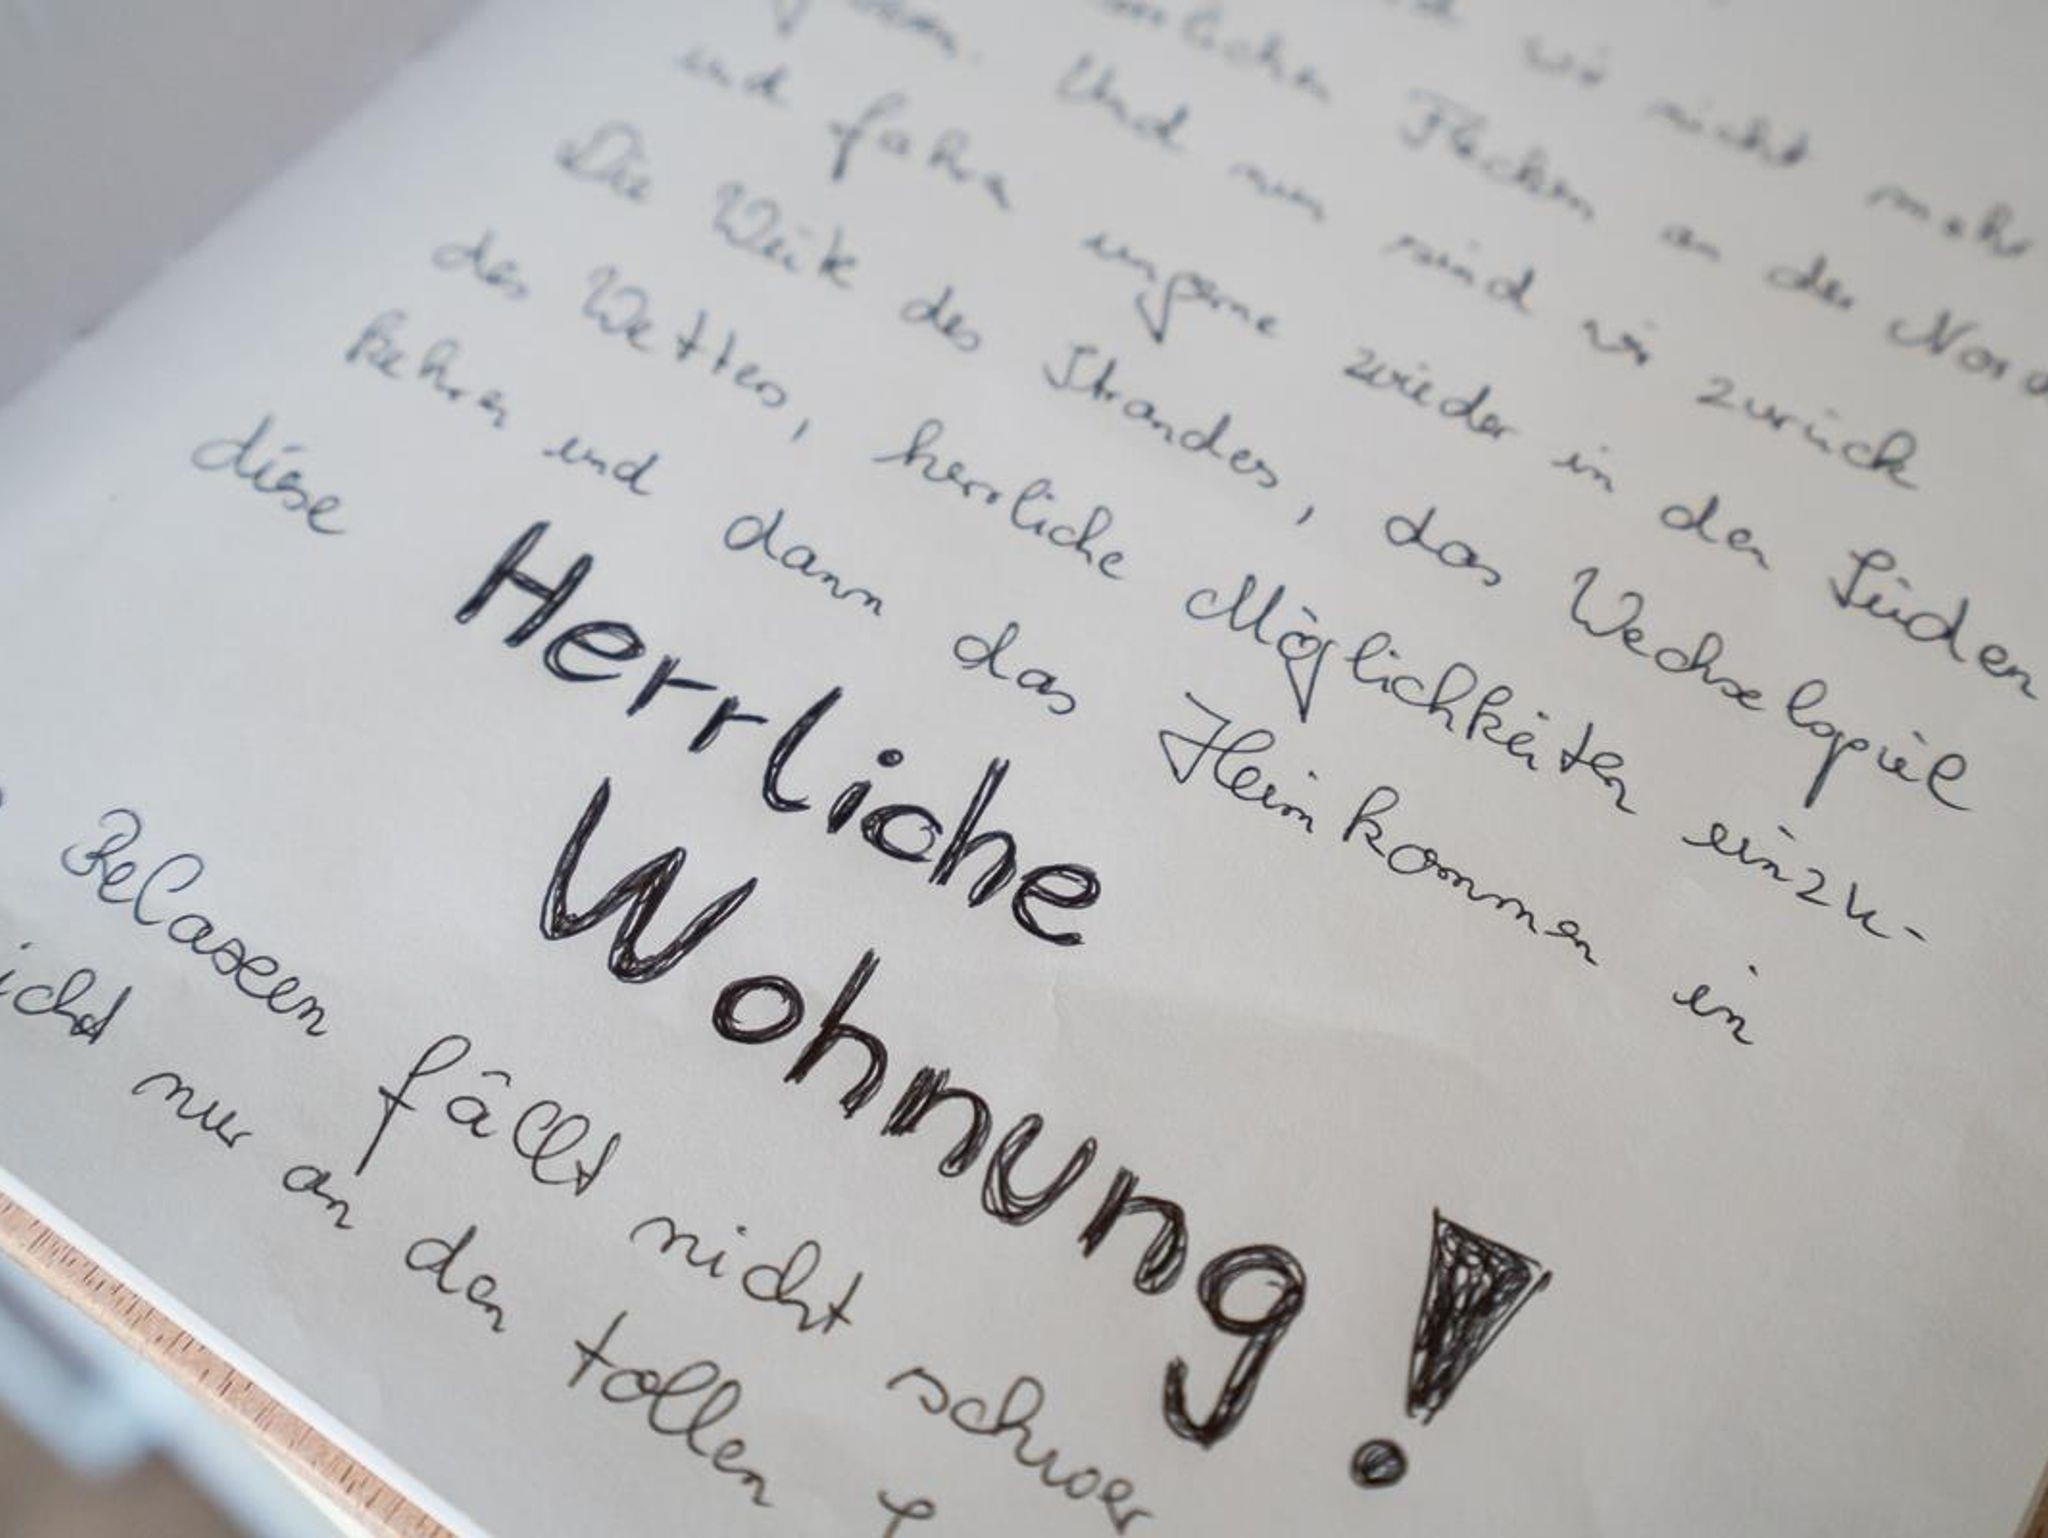 wir nicht mehr
Flecken an der Nord
Und nun sind wir zurück
und fahrn ungerne wieder in den Süden
Die Weite des Strandes, das Wechselspiel
des Wetters, herrliche Möglichkeiten einzu-
kehren und dann das Heimkommen in
diese
Herrliche
Wohnung!
Relaxen fällt nicht schwer
nur an den tollen